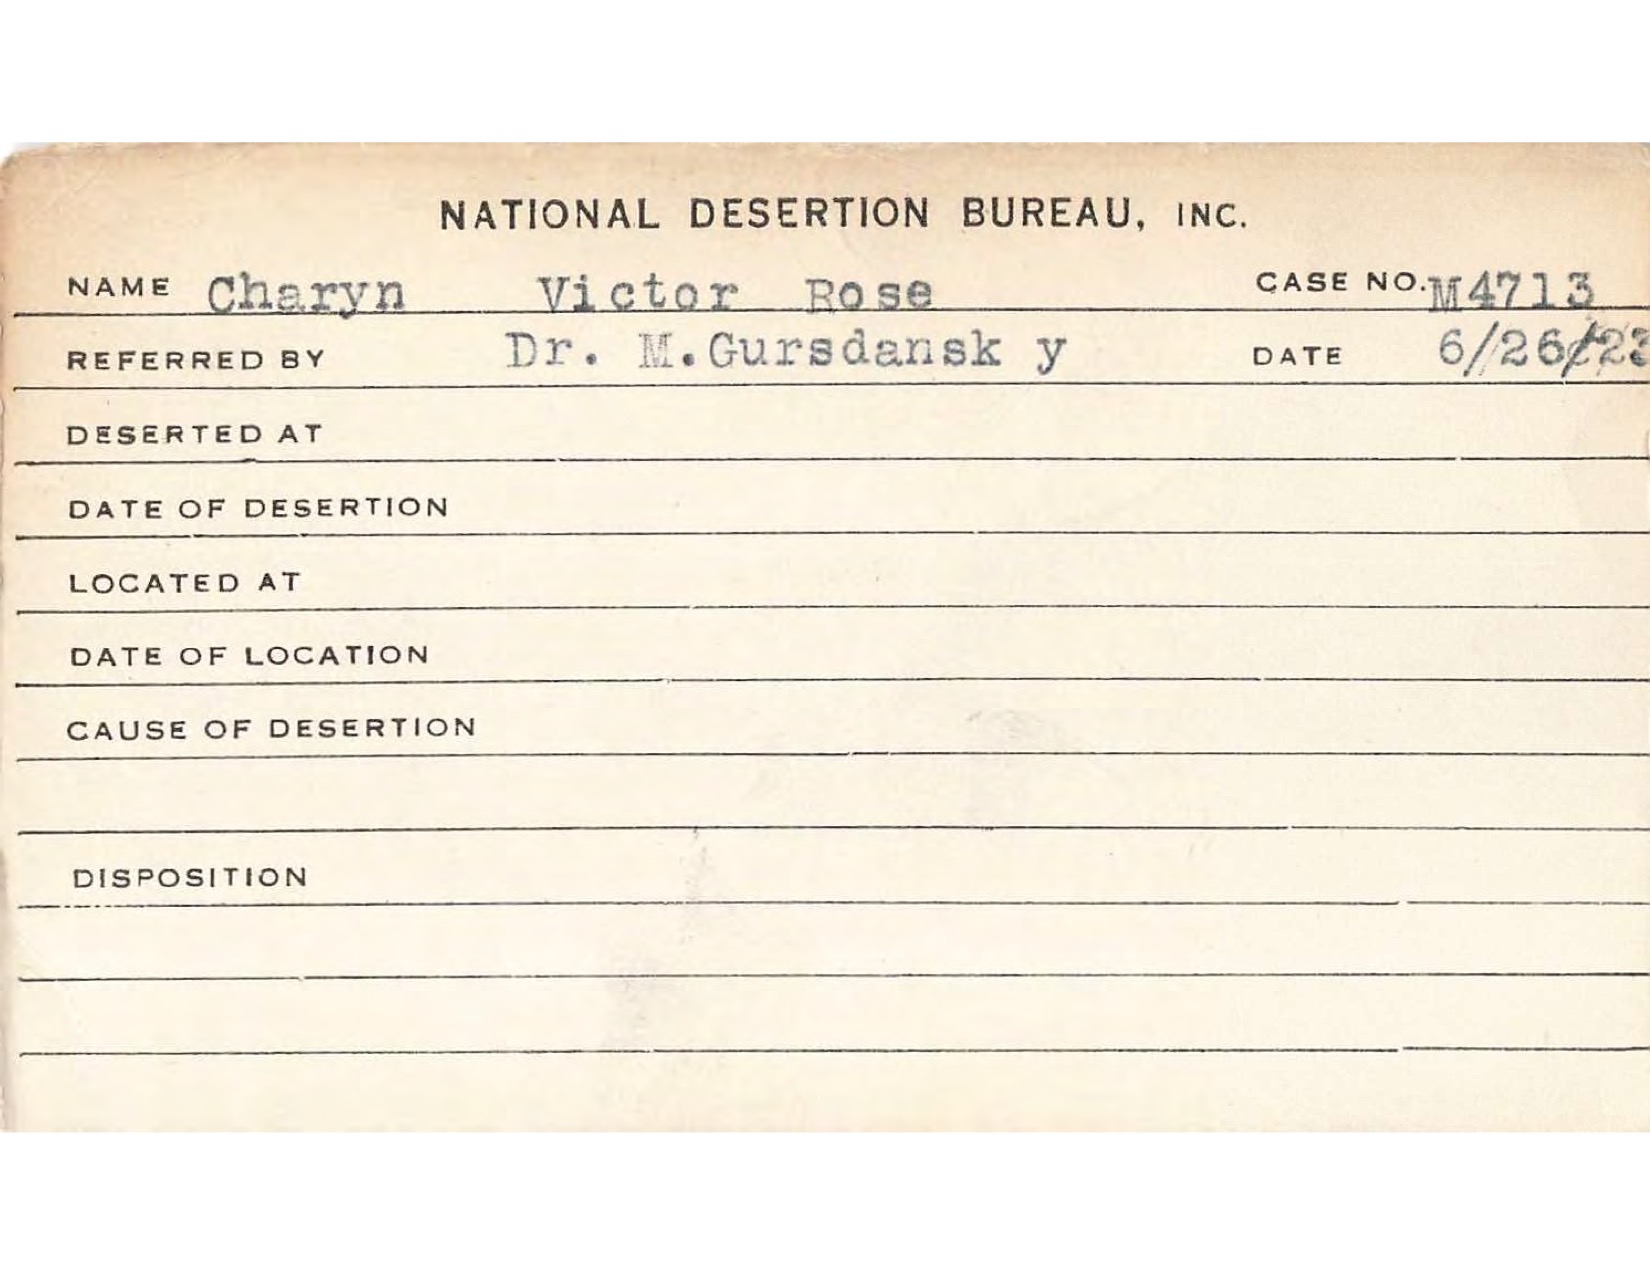 NATIONAL DESERTION BUREAU, INC.
NAME Charyn Victor Rose CASE NO. M4713
REFERRED BY Dr. M. Gursdansk y DATE 6/26/23
DESERTED AT
DATE OF DESERTION
LOCATED AT
DATE OF LOCATION
CAUSE OF DESERTION
DISPOSITION